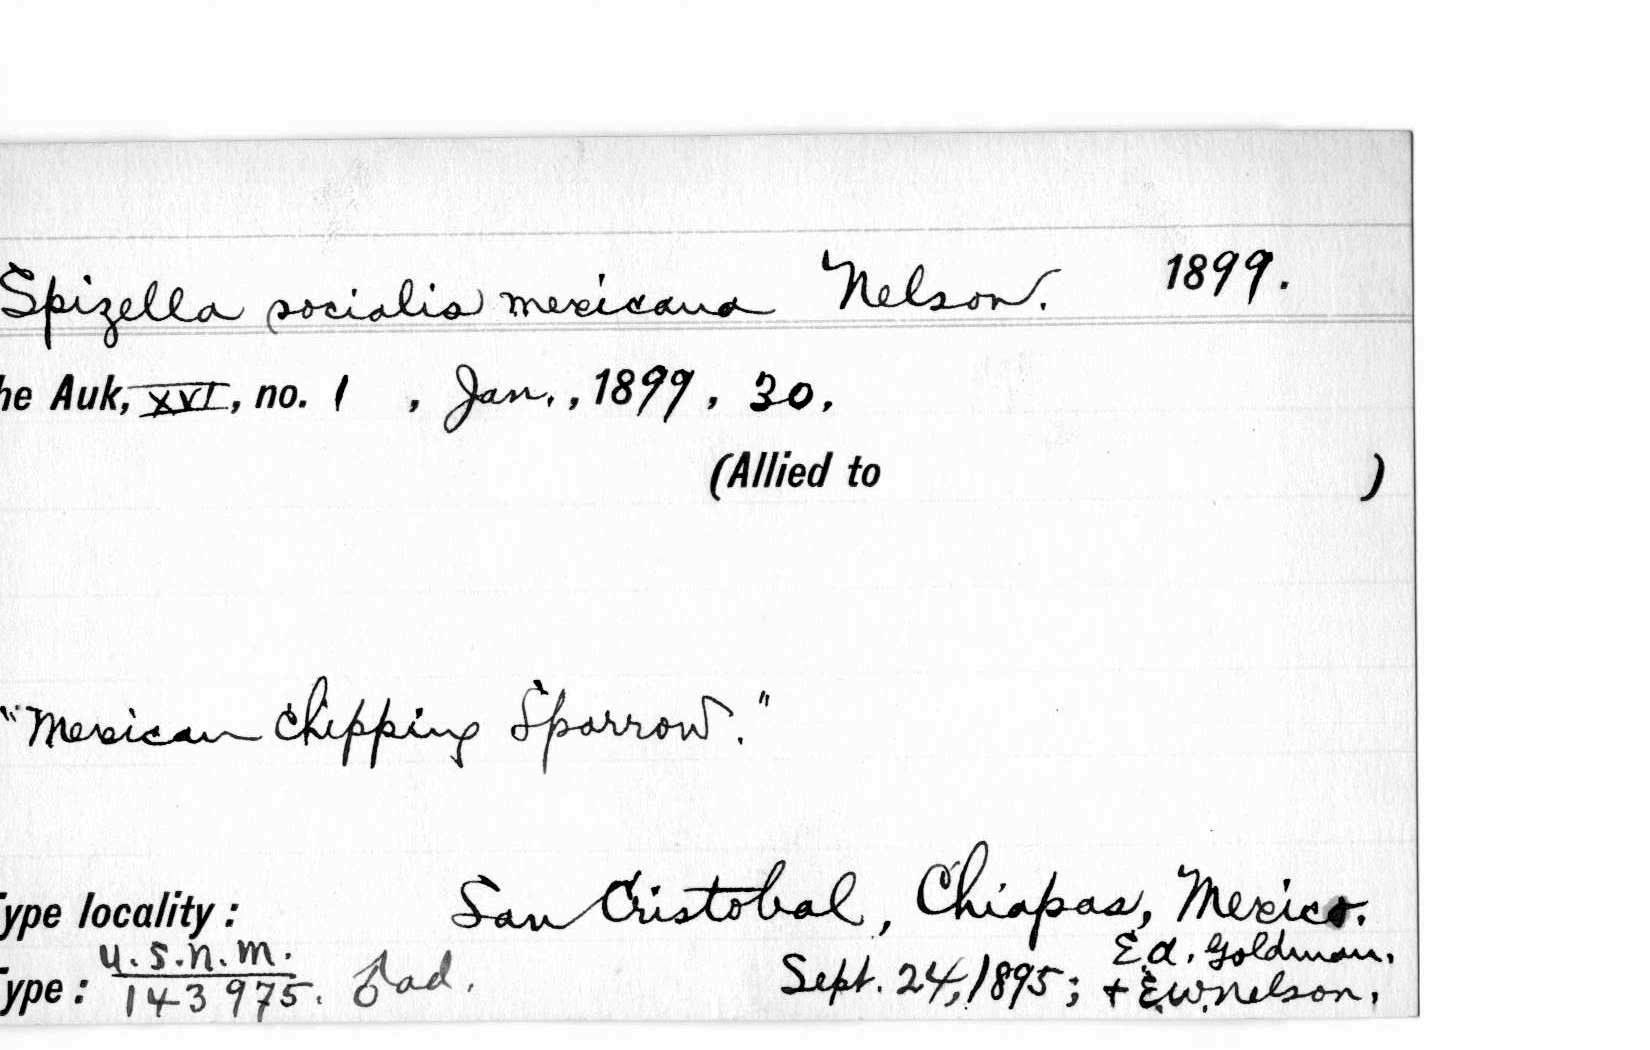 Spizella socialis mexicana Nelson. 1899.
he Auk, XVI, no. 1 , Jan., 1899, 30.
(Allied to )
"Mexican Chipping Sparrow."
Type locality: San Cristobal, Chiapas, Mexico.
Type: U.S.N.M. 143975. ♂ ad. Sept. 24, 1895; E.A. Goldman.
+ E.W. Nelson.